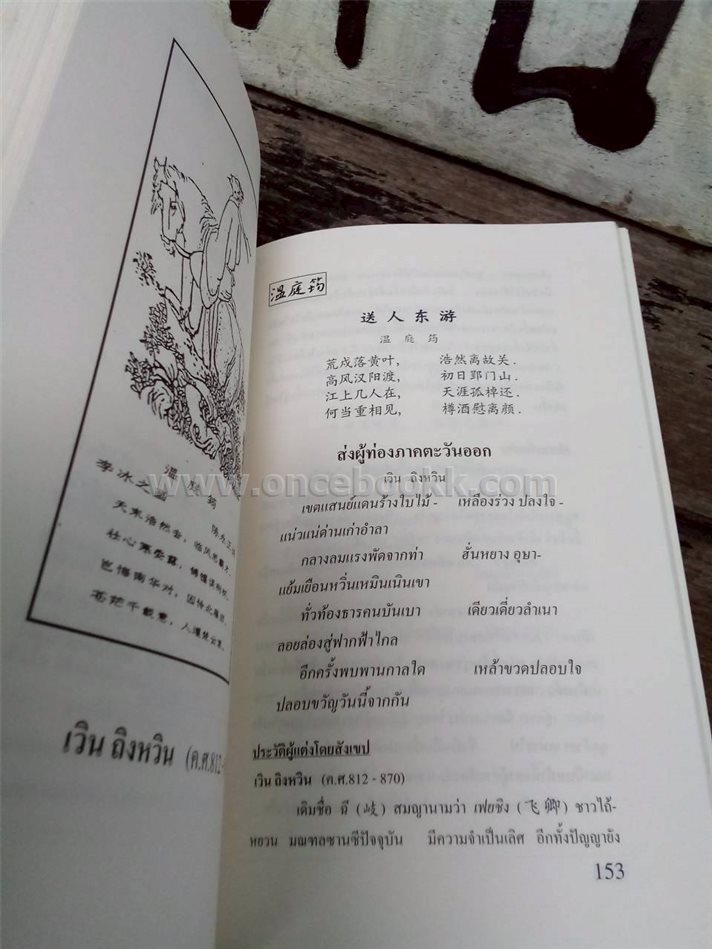 温庭筠
陈
李冰之
天末浩然
壮心寒
岂悔南华对，因
苍茫千载意，人
เวิน ถิงหวิน (ค.ศ.812-
温庭筠
送人东游
温庭筠
荒戍落黄叶， 浩然离故关.
高风汉阳渡， 初日郢门山.
江上几人在， 天涯孤棹还.
何当重相见， 樽酒慰离颜.
ส่งผู้ท่องภาคตะวันออก
เวิน ถิงหวิน
เขตแสนย์แดนร้างใบไม้- เหลืองร่วง ปลงใจ-
แน่วแน่ด่านเก่าอำลา
กลางลมแรงพัดจากท่า ฮั่นหยาง อุษา-
แย้มเยือนหวิ่นเหมินเนินเขา
ทั่วท้องธารคนบันเบา เดียวเดี่ยวลำเนา
ลอยล่องสู่ฟากฟ้าไกล
อีกครั้งพบพานกาลใด เหล้าขวดปลอบใจ
ปลอบขวัญวันนี้จากกัน
ประวัติผู้แต่งโดยสังเขป
เวิน ถิงหวิน (ค.ศ.812 - 870)
เดิมชื่อ ฉี (岐) สมญานามว่า เฟยชิง (飞卿) ชาวไถ้-
หยวน มณฑลซานซีปัจจุบัน มีความจำเป็นเลิศ อีกทั้งปัญญายัง
153
www.oncebookk.com